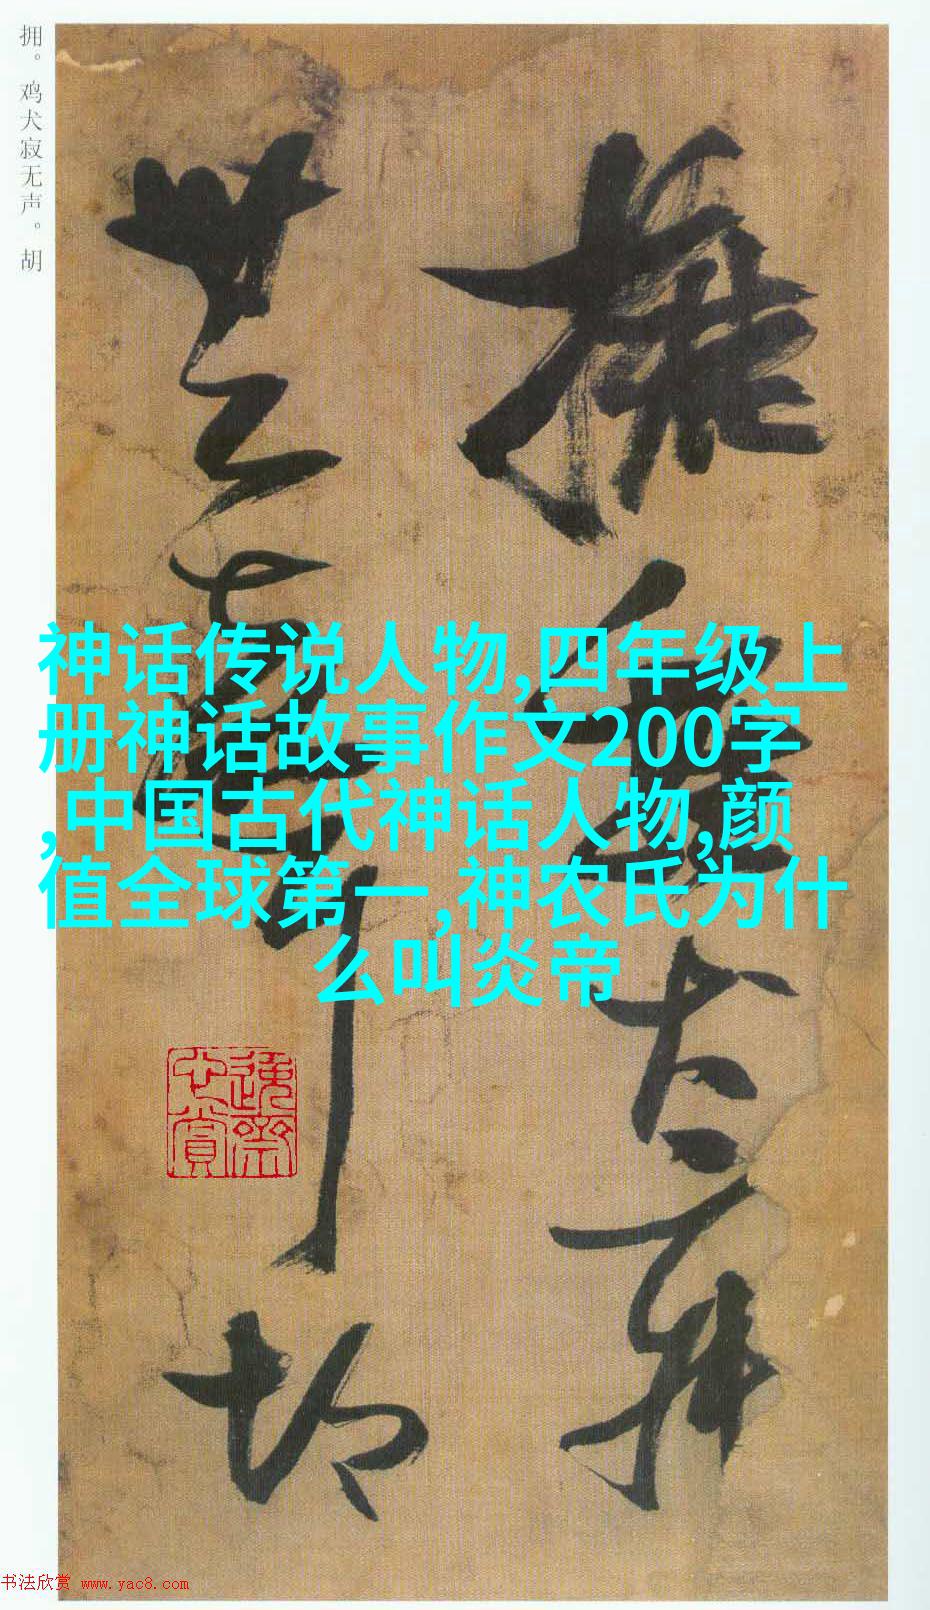 拥。鸡犬寂无声。胡
拥鸡犬寂
无声胡
神话传说人物,四年级上
册神话故事作文200字
,中国古代神话人物,颜
值全球第一,神农氏为什
么叫炎帝
书法欣赏 www.yac8.com